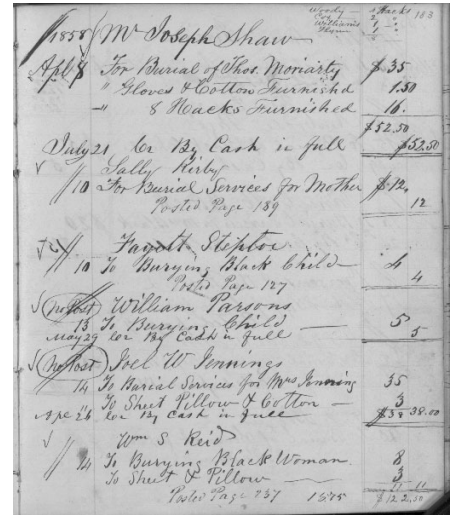 Woody - 4 Hacks 163
Cox 2 "
Williams 1 "
1 "
1858 Mr Joseph Shaw
Apl 8 For Burial of Thos. Moriarty $35
" Gloves & Cotton Furnished 1.50
" 8 Hacks Furnished 16.
$52.50
July 21 Cr By Cash in full $52.50
Sally Kirby
" 10 For Burial Services for Mother $12.
12
Posted Page 189
Favott Steptoe
" 10 To Burying Black Child 4
4
Posted Page 127
No Post William Parsons
" 13 To Burying Child 5
5
May 29 Cr By Cash in full
No Post Joel W Jennings
" 14 To Burial Services for Mrs Jenning 35
To Sheet Pillow & Cotton 3
Apl 26 Cr By Cash in full $38 38.00
Wm S Reid
" 14 To Burying Black Woman 8
To Sheet & Pillow 3
11 11
Posted Page 237 1875 $122.50